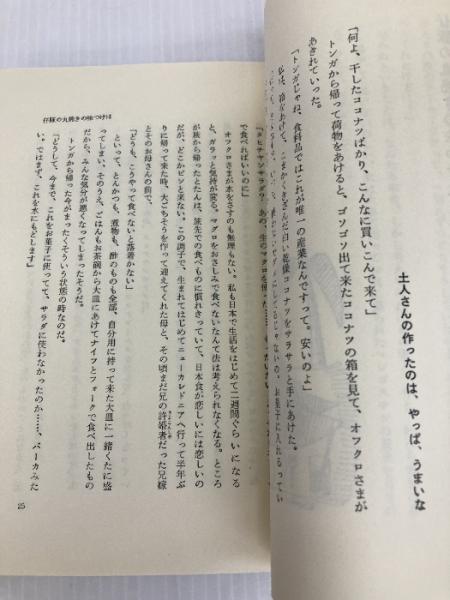 土人さんの作ったのは、やっぱ、うまいな
「何よ、干したココナツばかり、こんなに買いこんで来て」
トンガから帰って荷物をあけると、ゴソゴソ出て来たココナツの箱を見て、オフクロさまが
あきれていった。
「トンガじゃね、食料品ではこれが唯一の産業なんですって。安いのよ」
私は、箱をあけて、こまかくきざんだ白い乾燥ココナツをサラサラと手にあけた。
お菓子に入れるってい
仔豚の丸焼きの味つけは
「タヒチヤンサラダ？ あの、生のマグロを使った……
で食べればいいのに」
オフクロさまが水をさすのも無理もない。私も日本で生活をはじめて二週間ぐらいになる
と、ガラッと気分が変る。マグロをおさしみで食べないなんて法は考えられなくなる。ところ
が旅から帰ったとたんは、旅先での食べものに慣れきっていて、日本食が恋しいには恋しい
だが、どこかピンと来ない。この調子で、生まれてはじめてニューカレドニアへ行って半年ぶ
りに帰って来た時、大ごちそうを作って迎えてくれた母と、その頃まだ兄の許婚者だった兄嫁
とそのお母さんの前で、
「どうも、こうやって食べないと落着かない」
といって、とんかつも、煮物も、酢のものも全部、自分用に持って来た大皿に一緒くたに盛
ってしまい、そのうえ、ごはんもお茶碗から大皿にあけてナイフとフォークで食べ出したもの
だから、みんな気分が悪くなってしまったそうだ。
トンガから帰った今がまったくそういう状態の時なのだ。
「どうして、今まで、これをお菓子に使ってて、サラダに使わなかったのか……、バーカみた
い。ではまず、これを水にもどします」
25